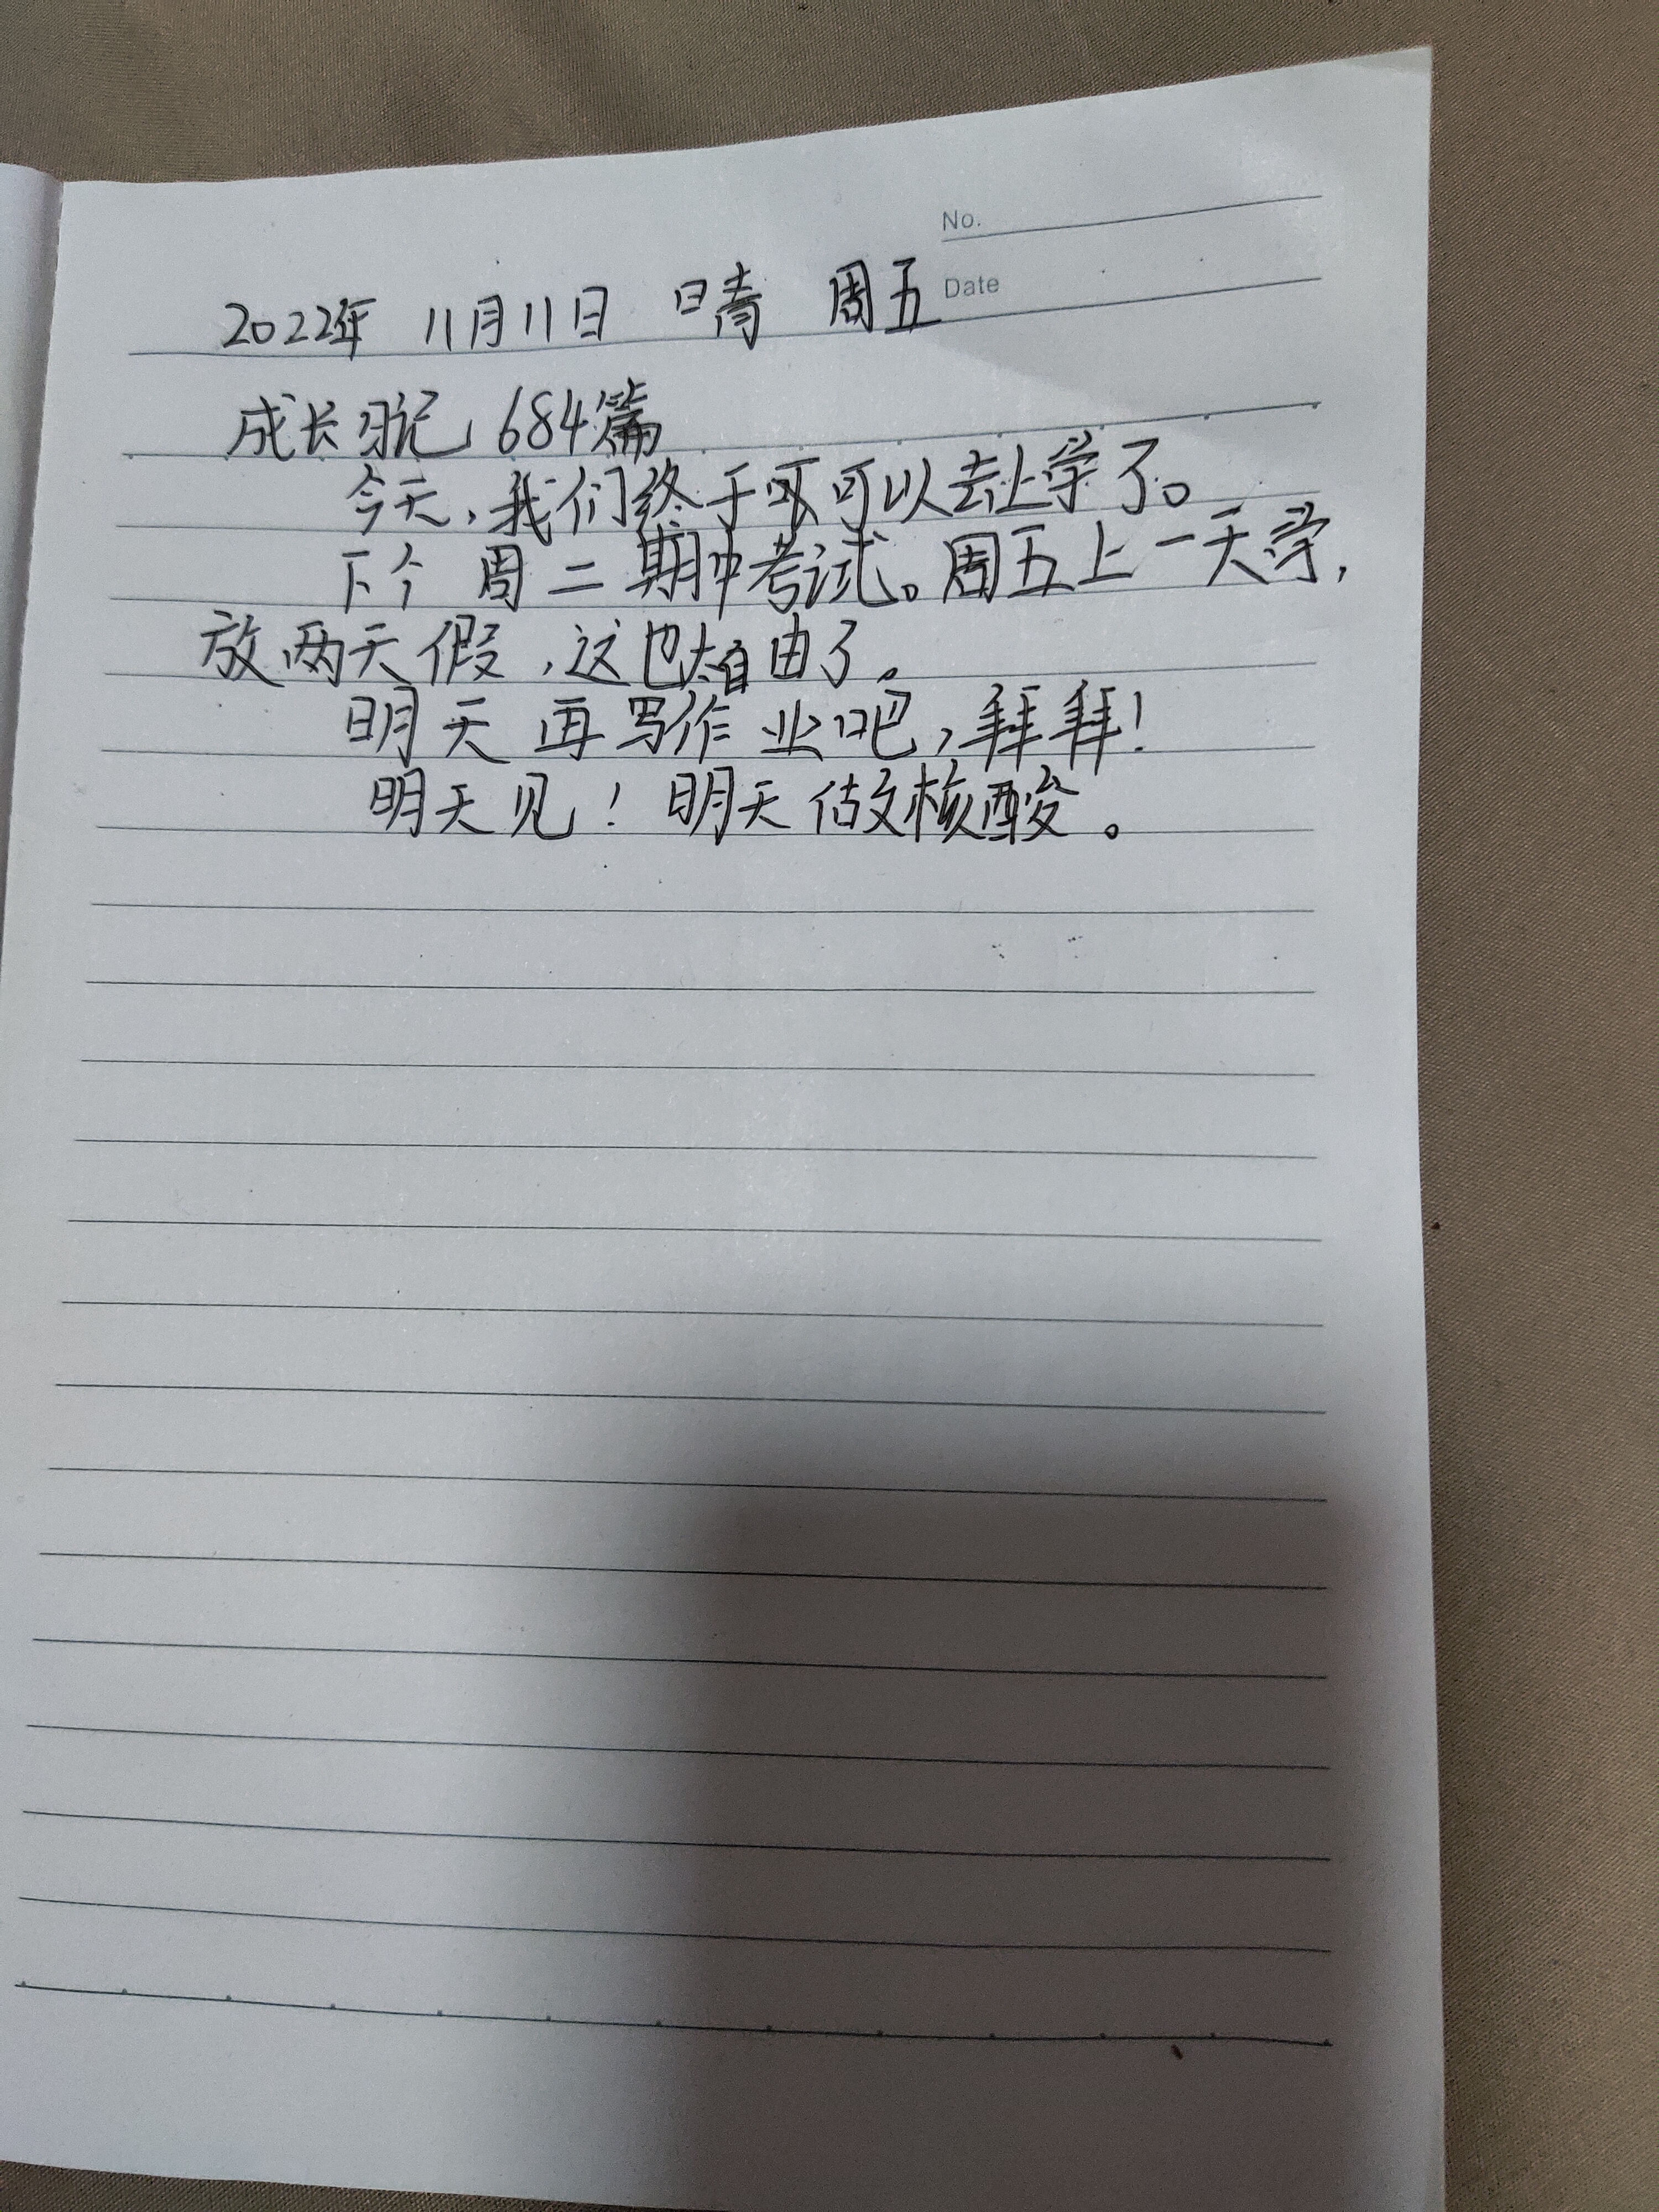 No.
Date
2022年 11月11日 晴 周五
成长日记 684篇
今天,我们终于可以去上学了。
下个周二期中考试。周五上一天学,
放两天假,这也太自由了。
明天再写作业吧,拜拜!
明天见!明天做核酸。